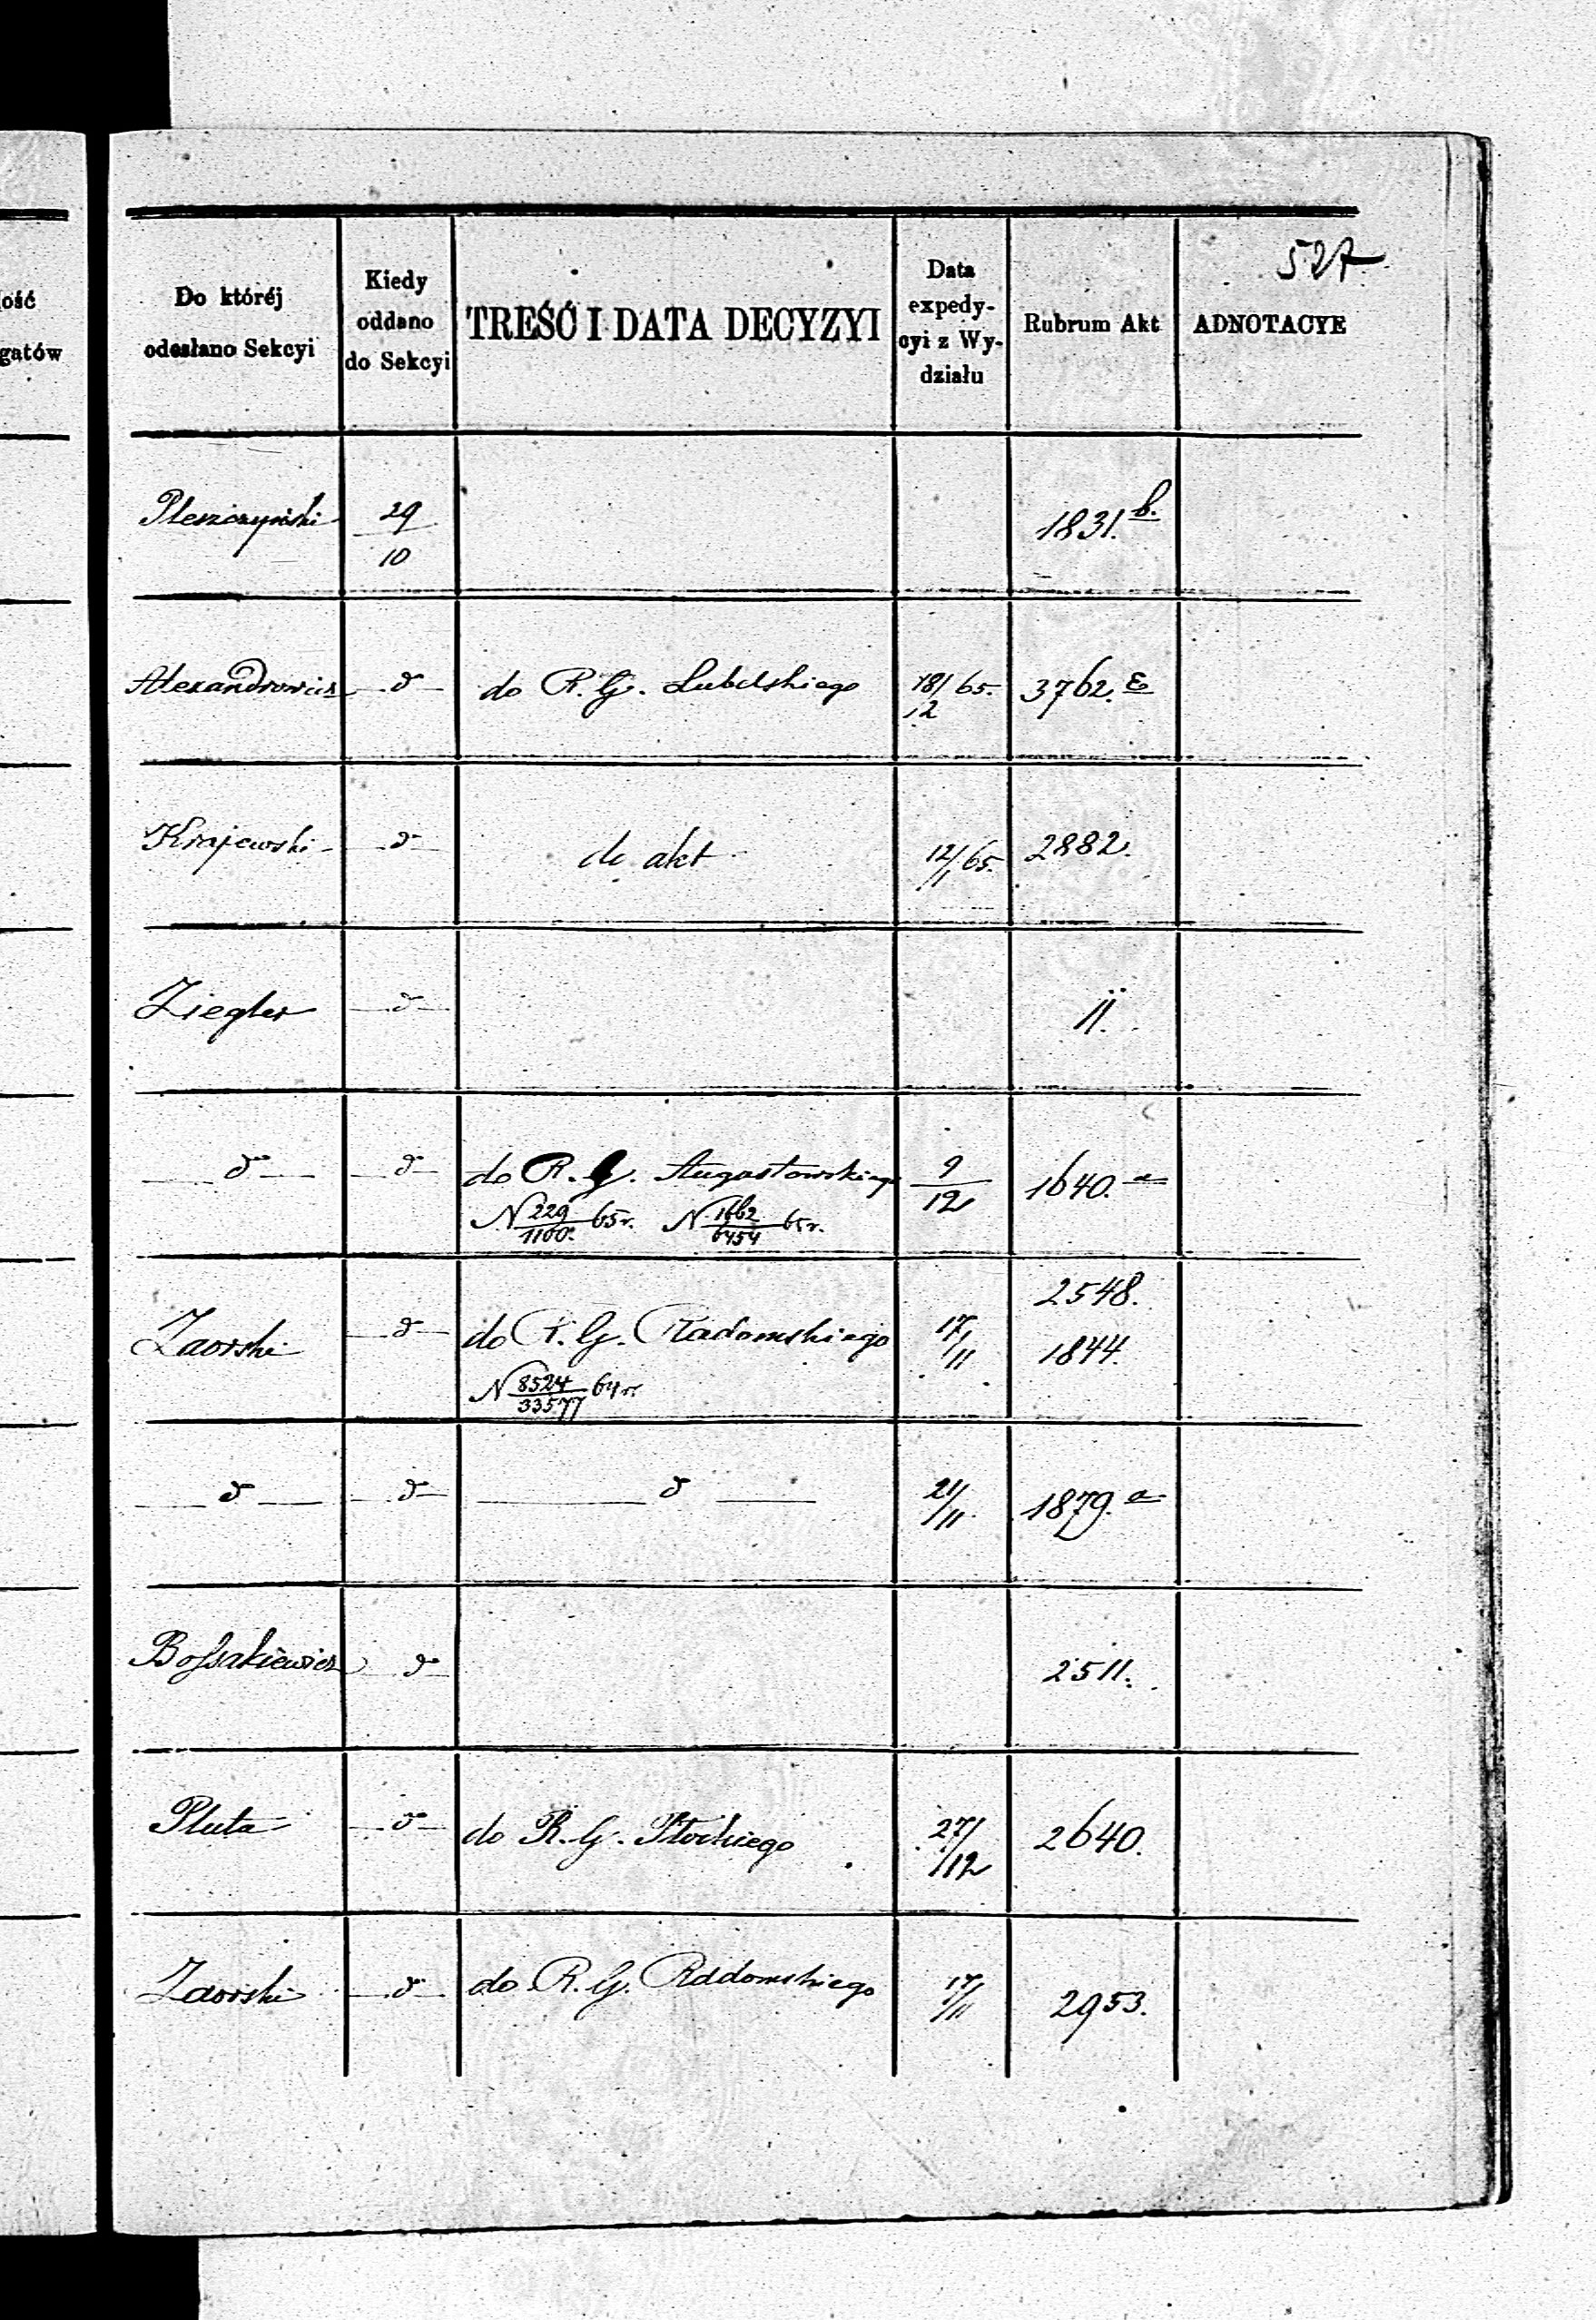 527.
ość
gatów
Do któréj
odesłano Sekcyi
Kiedy
oddano
do Sekcyi
TREŚĆ I DATA DECYZYI
Data
expedy-
cyi z Wy-
działu
Rubrum Akt
ADNOTACYE
Pleszczyński 29/10 1831. b.
Alexandrowicz — d — do R. G. Lubelskiego 18/12 65. 3762.
Krajewski — d — do akt 12/1 65. 2882.
Ziegler — d — 11.
— d — — d — do R. G. Augustowskiego 9/12 1640. a
N 229/1160. 65r. N 1662/6454 65r.
2548.
Zaorski — d — do R. G. Radomskiego 17/11 1844.
N 8524/33577 64 r.
— d — — d — — d — 21/11. 1879. a
Bossakiewicz — d — 2511.
Pluta — d — do R. G. Płockiego 27/12 2640.
Zaorski — d — do R. G. Radomskiego 17/11 2953.